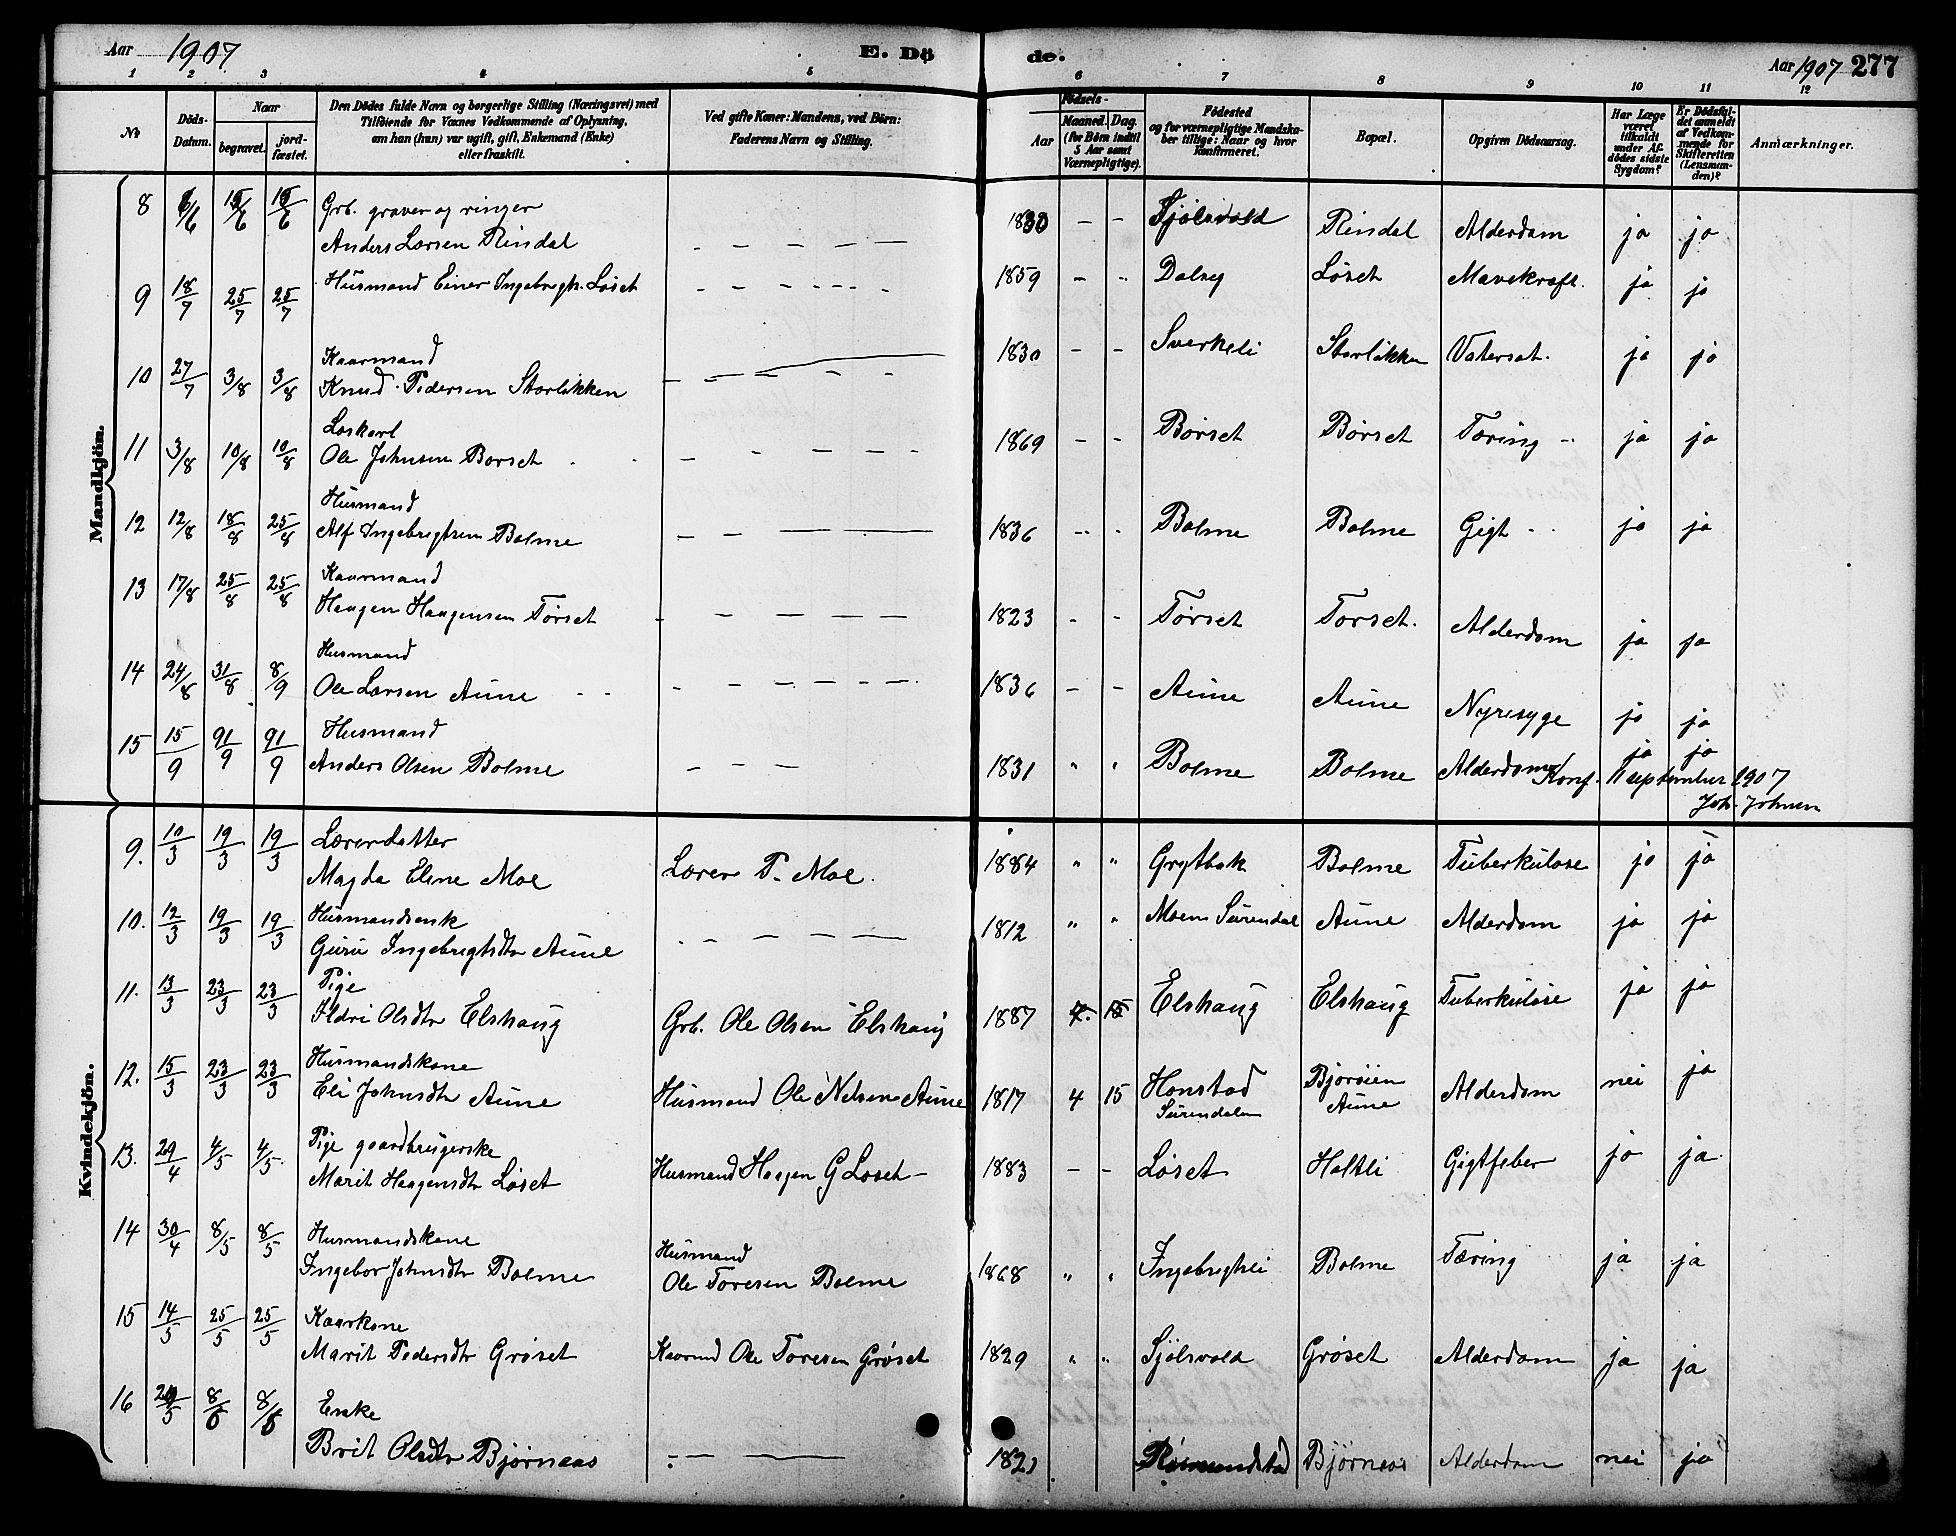 Aar 1907 E. Dö de. Aar 1907 277
1 2 3 4 5 6 7 8 9 10 11 12
No
Döds-Datum.
Naar begravet. jordfæstet.
Den Dödes fulde Navn og borgerlige Stilling (Næringsvei) med
Tilföiende for Voxnes Vedkommende af Oplysning,
om han (hun) var ugift, gift, Enkemand (Enke)
eller fraskilt.
Ved gifte Koner: Mandens, ved Börn:
Faderens Navn og Stilling.
Födsels-
Aar
Maaned. Dag.
(for Börn indtil
5 Aar samt
Værnepligtige).
Födested
og for værnepligtige Mandskaber tillige: Naar og hvor
Konfirmeret.
Bopæl.
Opgiven Dödsaarsag.
Har Læge været tilkaldt under Afdödes sidste Sygdom?
Er Dödsfaldet anmeldt af Vedkommende for Skifteretten (Lensmanden)?
Anmærkninger.
Mandkjön.
8 6/6 15/6 15/6 Grb. graver og ringer
Anders Larsen Rindal - - - - - 1830 - - Sjölsvold Rindal Alderdom ja ja
9 18/7 25/7 25/7 Husmand Einar Ingebrigts. Löset - - - - 1859 - - Dalsey Löset Mavekræft. ja ja
10 27/7 3/8 3/8 Kaarmand
Knud Pedersen Storlikken - - - - 1830 - - Sverkeli Storlikken Vatersot. ja ja
11 3/8 10/8 10/8 Løskarl
Ole Johnsen Børset - - - - - 1869 - - Børset Børset Tæring - ja ja
12 12/8 18/8 25/8 Husmand
Alf Ingebrigtsen Bolme - - - - 1836 - - Bolme Bolme Gigt - - ja ja
13 17/8 25/8 25/8 Kaarmand
Haagen Haagensen Tørset - - - - - 1823 - - Tørset Torset. Alderdom ja ja
14 24/8 31/8 8/9 Husmand
Ole Larsen Aune - - - - - - 1836 - - Aune Aune Nyresyge ja ja
15 15/9 21/9 21/9 Husmand
Anders Olsen Bolme - - - 1831 " " Bolme Bolme Alderdom ja ja
Konf. 11 september 1907
Joh. Johnsen
Kvindekjön.
9. 10/3 19/3 19/3 Lærerdatter
Magda Elene Moe Lærer P. Moe. 1884 " " Grytbak Bolme Tuberkulose ja ja
10. 12/3 19/3 19/3 Husmandsenk
Guru Ingebrigtsdtr Aune - - - - - 1812 " " Moen Surendal Aune Alderdom ja ja
11. 13/3 23/3 23/3 Pige
Ildri Olsdtr Elshaug Grb. Ole Olsen Elshaug 1887 4. 15 Elshaug Elshaug Tuberkulose ja ja
12. 15/3 23/3 23/3 Husmandskone
Eli Johnsdtr Aune Husmand Ole Nelsen Aune 1817 4 15 Honstad
Surendalen Bjørøien
Aune Alderdom nei ja
13. 29/4 4/5 4/5. Pige gaardbrugerske
Marit Haagensdtr Løset Husmand Haagen G Løset - 1883 - - Løset Holtli Gigtfeber ja ja
14 30/4 8/5 8/5 Husmandskone
Ingebor Johnsdtr Bolme Husmand
Ole Toresen Bolme 1868 " " Ingebrigtsli Bolme Tæring ja ja
15 14/5 25/5 25/5 Kaarkone
Marit Pedersdtr Grøset Kaarmd Ole Toresen Grøset 1829 " " Sjölsvold Grøset Alderdom ja ja
16 29/5 8/6 8/6 Enke
Brit Olsdtr Bjørnaas - - - 1821 Romundstad Bjørnaas Alderdom nei ja